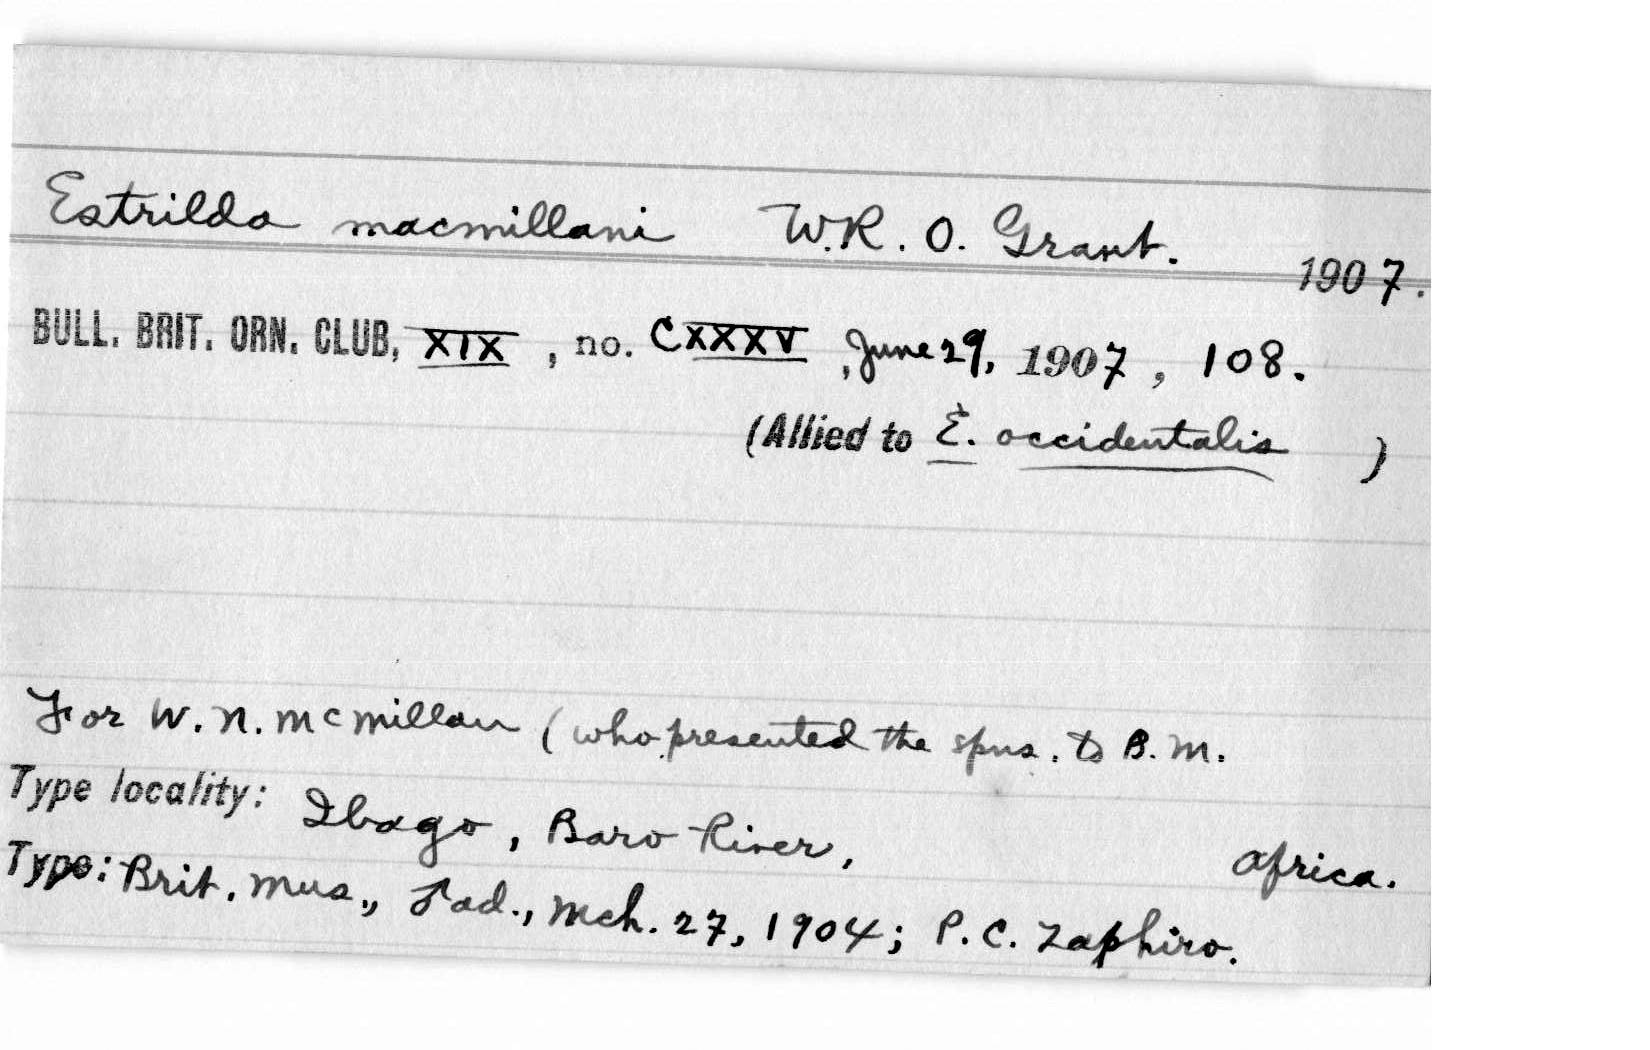 Estrilda macmillani W.R. O. Grant. 1907.
BULL. BRIT. ORN. CLUB, XIX, no. CXXXV, June 29, 1907, 108.
(Allied to E. occidentalis )
For W. N. McMillan (who presented the spns. to B. M.
Type locality: Ibago, Baro River, Africa.
Type: Brit. Mus., ad., Mch. 27, 1904; P. C. Zaphiro.